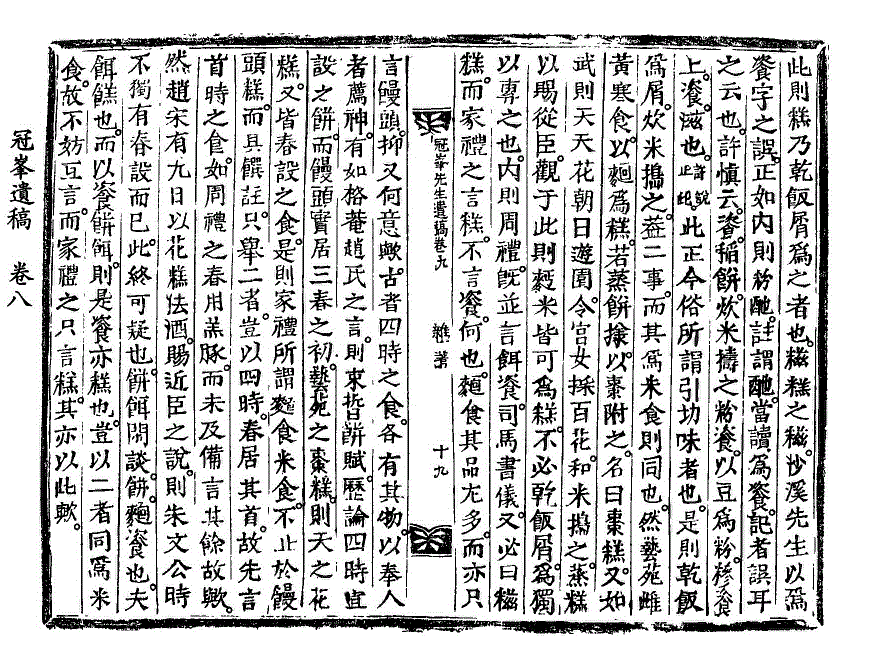 此則糕乃乾飯屑爲之者也糍糕之糍沙溪先生以爲
餈字之誤正如內則粉酏註謂酏當讀爲餈記者誤耳
之云也許愼云餈稻餠炊米擣之粉餈以豆爲粉糝餈
上餈滋也許說止此此正今俗所謂引切味者也是則乾飯
爲屑炊米搗之蓋二事而其爲米食則同也然藝苑雌
黃寒食以麪爲糕若蒸餠㨾以棗附之名曰棗糕又如
武則天天花朝日遊園令宮女採百花和米搗之蒸糕
以賜從臣觀于此則麪米皆可爲糕不必乾飯屑爲獨
以專之也內則周禮旣並言餌餈司馬書儀又必曰糍
糕而家禮之言糕不言餈何也麵食其品尤多而亦只
冠峯先生遺稿卷九 雜著 十九
言饅頭抑又何意歟古者四時之食各有其物以奉人
者薦神有如格菴趙氏之言則束晳餠賦歷論四時宜
設之餠而饅頭實居三春之初藝苑之棗糕則天之花
糕又皆春設之食是則家禮所謂麵食米食不止於饅
頭糕而具饌註只擧二者豈以四時春居其首故先言
首時之食如周禮之春用羔豚而未及備言其餘故歟
然趙宋有九日以花糕法酒賜近臣之說則朱文公時
不獨有春設而已此終可疑也餠餌閒談餠麵餈也夫
餌餻也而以餈餠餌則是餈亦糕也豈以二者同爲米
食故不妨互言而家禮之只言糕其亦以此歟
冠峯遺稿 卷八